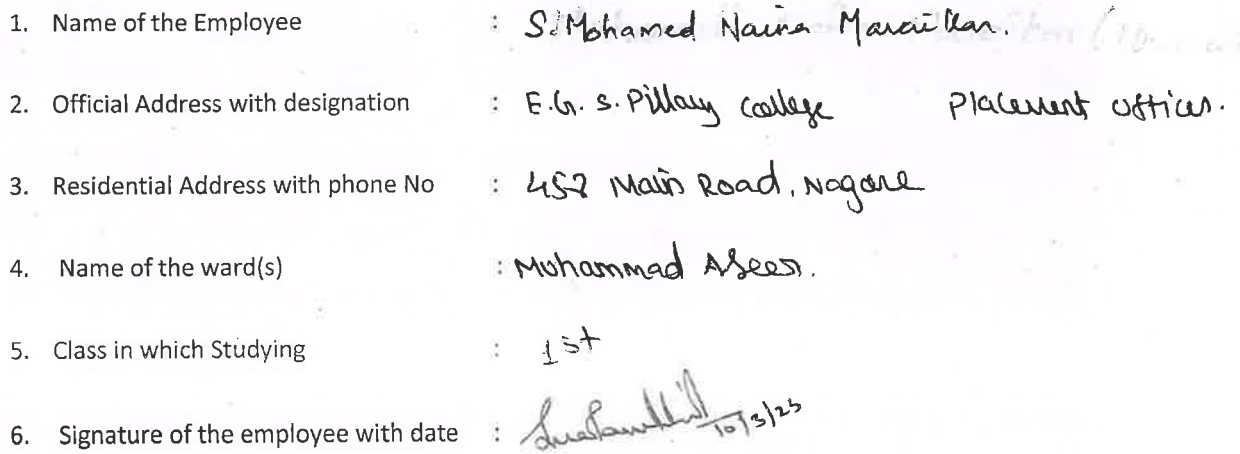 1. Name of the Employee : S. Mohamed Naina Maraikkar.
2. Official Address with designation : E.G.S. Pillay college Placement officer.
3. Residential Address with phone No : Main Road, Nagore
4. Name of the ward(s) : Mohammad
5. Class in which Studying : 1st
6. Signature of the employee with date : 10/3/23